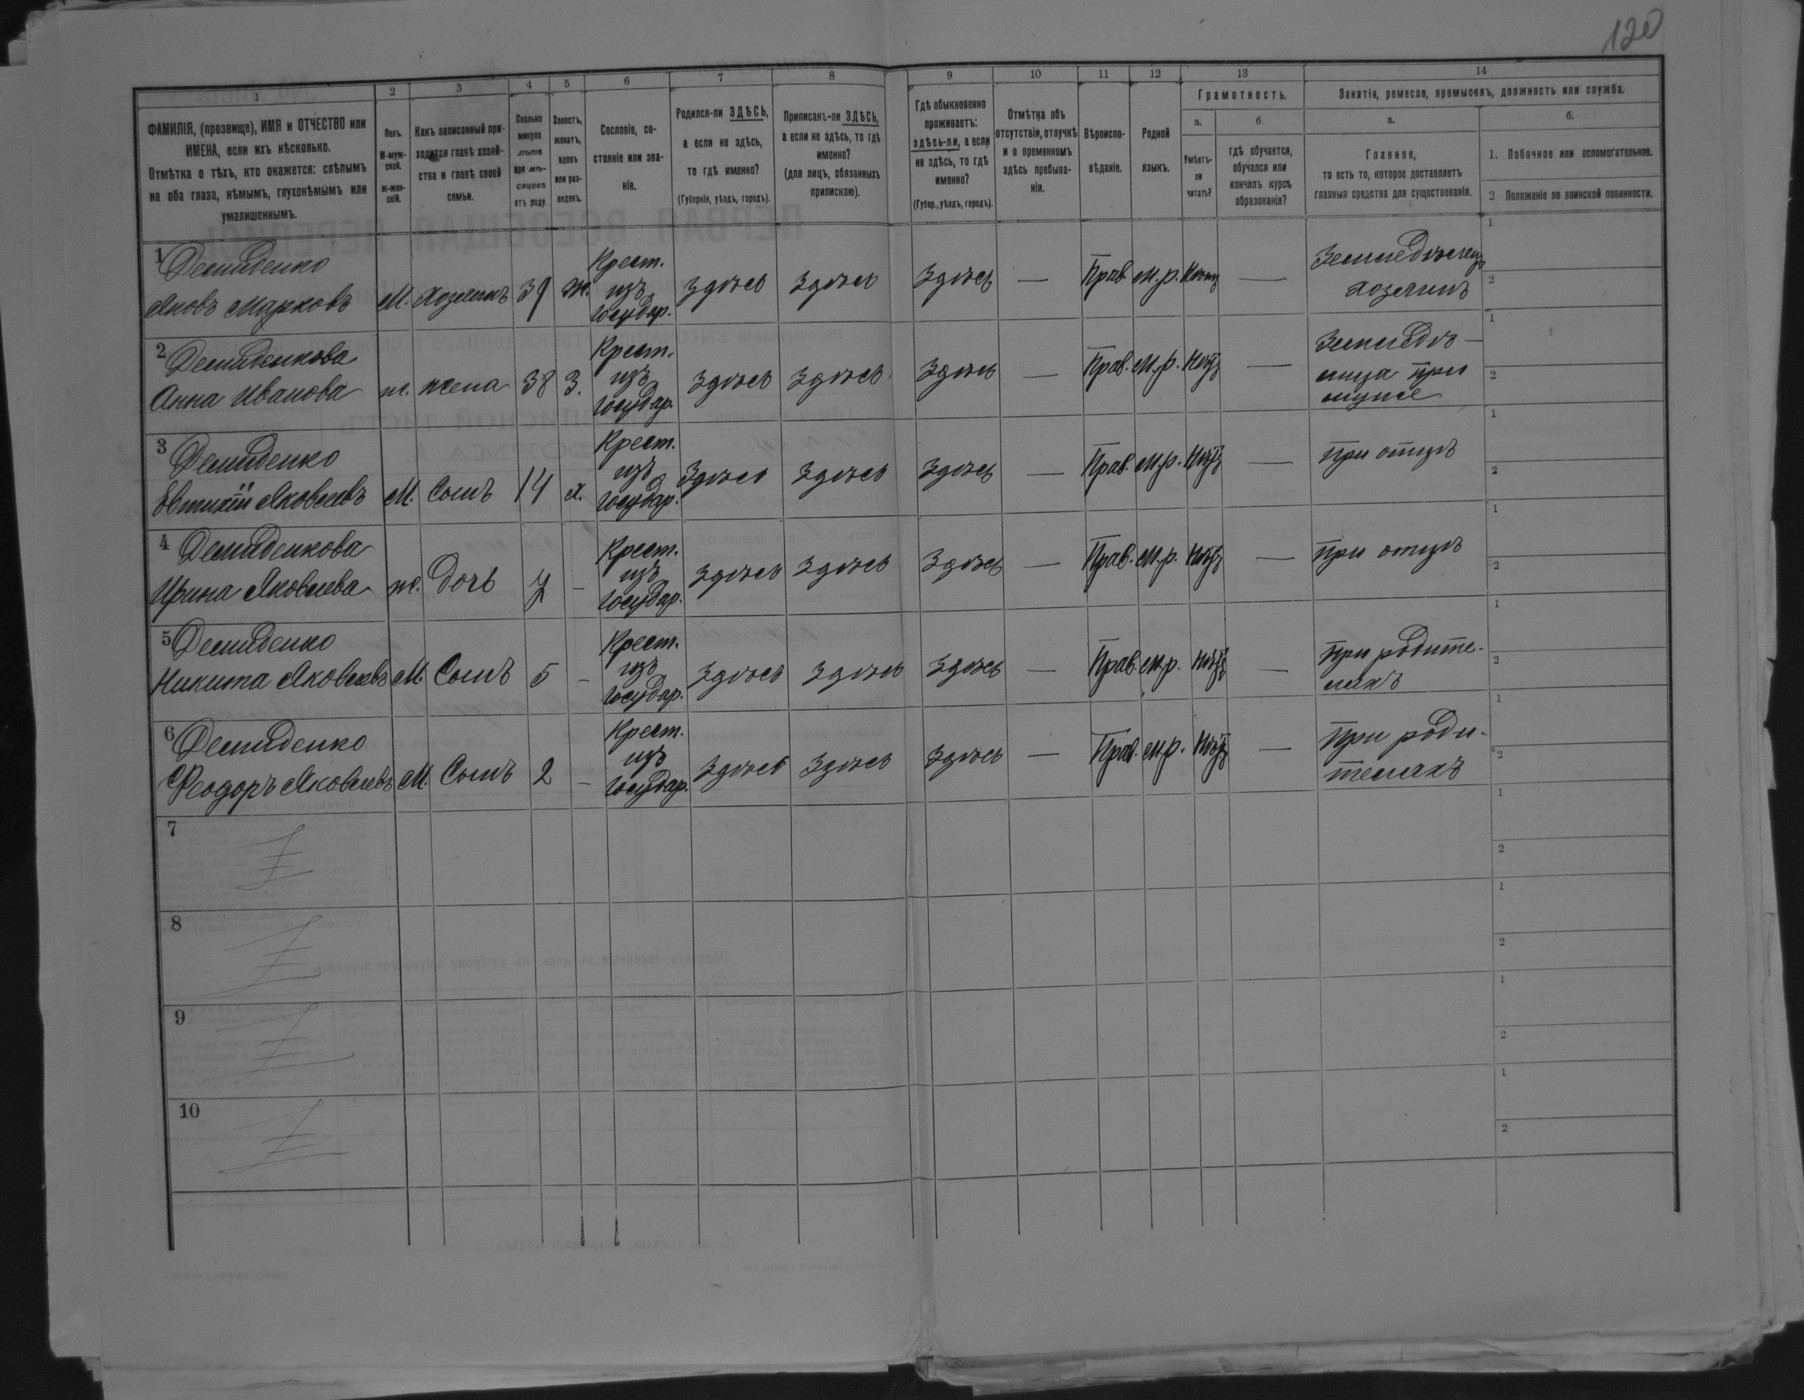 120
1 2 3 4 5 6 7 8 9 10 11 12 13 14
ФАМИЛІЯ, (прозвище), ИМЯ и ОТЧЕСТВО или
ИМЕНА, если ихъ нѣсколько.
Отмѣтка о тѣхъ, кто окажется: слѣпымъ
на оба глаза, нѣмымъ, глухонѣмымъ или
умалишеннымъ.
Полъ.
М-муж-
ской.
ж-жен-
скій.
Какъ записанный при-
ходится главѣ хозяй-
ства и главѣ своей
семьи.
Сколько
минуло
лѣтъ
или мѣ-
сяцевъ
отъ роду.
Холостъ,
женатъ,
вдовъ
или раз-
веденъ.
Сословіе, со-
стояніе или зва-
ніе.
Родился-ли ЗДѢСЬ,
а если не здѣсь,
то гдѣ именно?
(Губернія, уѣздъ, городъ).
Приписанъ-ли ЗДѢСЬ,
а если не здѣсь, то гдѣ
именно?
(для лицъ, обязанныхъ
припискою).
Гдѣ обыкновенно
проживаетъ:
здѣсь-ли, а если
не здѣсь, то гдѣ
именно?
(Губер., уѣздъ, городъ).
Отмѣтка объ
отсутствіи, отлучкѣ
и о временномъ
здѣсь пребыва-
ніи.
Вѣроиспо-
вѣданіе.
Родной
языкъ.
Грамотность.
а.
Умѣетъ-
ли
читать?
б.
гдѣ обучается,
обучался или
кончилъ курсъ
образованія?
Занятія, ремесло, промыселъ, должность или служба.
а.
Главное,
то есть то, которое доставляетъ
главныя средства для существованія.
б.
1. Побочное или вспомогательное.
2 Положеніе по воинской повинности.
1 Демиденко
Яковъ Марковъ М. хозяинъ 39 ж. Крест. изъ государ. Здѣсь Здѣсь Здѣсь — Прав. м.р. Нѣтъ — Земледѣлецъ хозяинъ 1 2
2 Демиденкова
Анна Иванова ж. жена 38 З. Крест. изъ государ. Здѣсь Здѣсь Здѣсь — Прав. м.р. Нѣтъ — Земледѣ- лица при мужѣ 1 2
3 Демиденко
Евтихій Яковлевъ М. Сынъ 14 х. Крест. изъ государ. Здѣсь Здѣсь Здѣсь — Прав. м.р. Нѣтъ — при отцѣ 1 2
4 Демиденкова
Ирина Яковлева ж. дочь 7 - Крест. изъ государ. Здѣсь Здѣсь Здѣсь — Прав. м.р. Нѣтъ — При отцѣ 1 2
5 Демиденко
Никита Яковлевъ М. Сынъ 5 - Крест. изъ государ. Здѣсь Здѣсь Здѣсь — Прав. м.р. Нѣтъ — при родите- ляхъ 1 2
6 Демиденко
Феодоръ Яковлевъ М. Сынъ 2 - Крест. изъ государ. Здѣсь Здѣсь Здѣсь — Прав. м.р. Нѣтъ — При роди- теляхъ 1 2
7 1 2
8 1 2
9 1 2
10 1 2